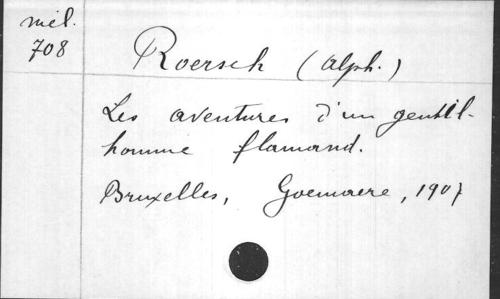 mél.
708
Roersch (Alph.)
Les aventures d'un gentil-
homme flamand.
Bruxelles, Goemaere, 1907